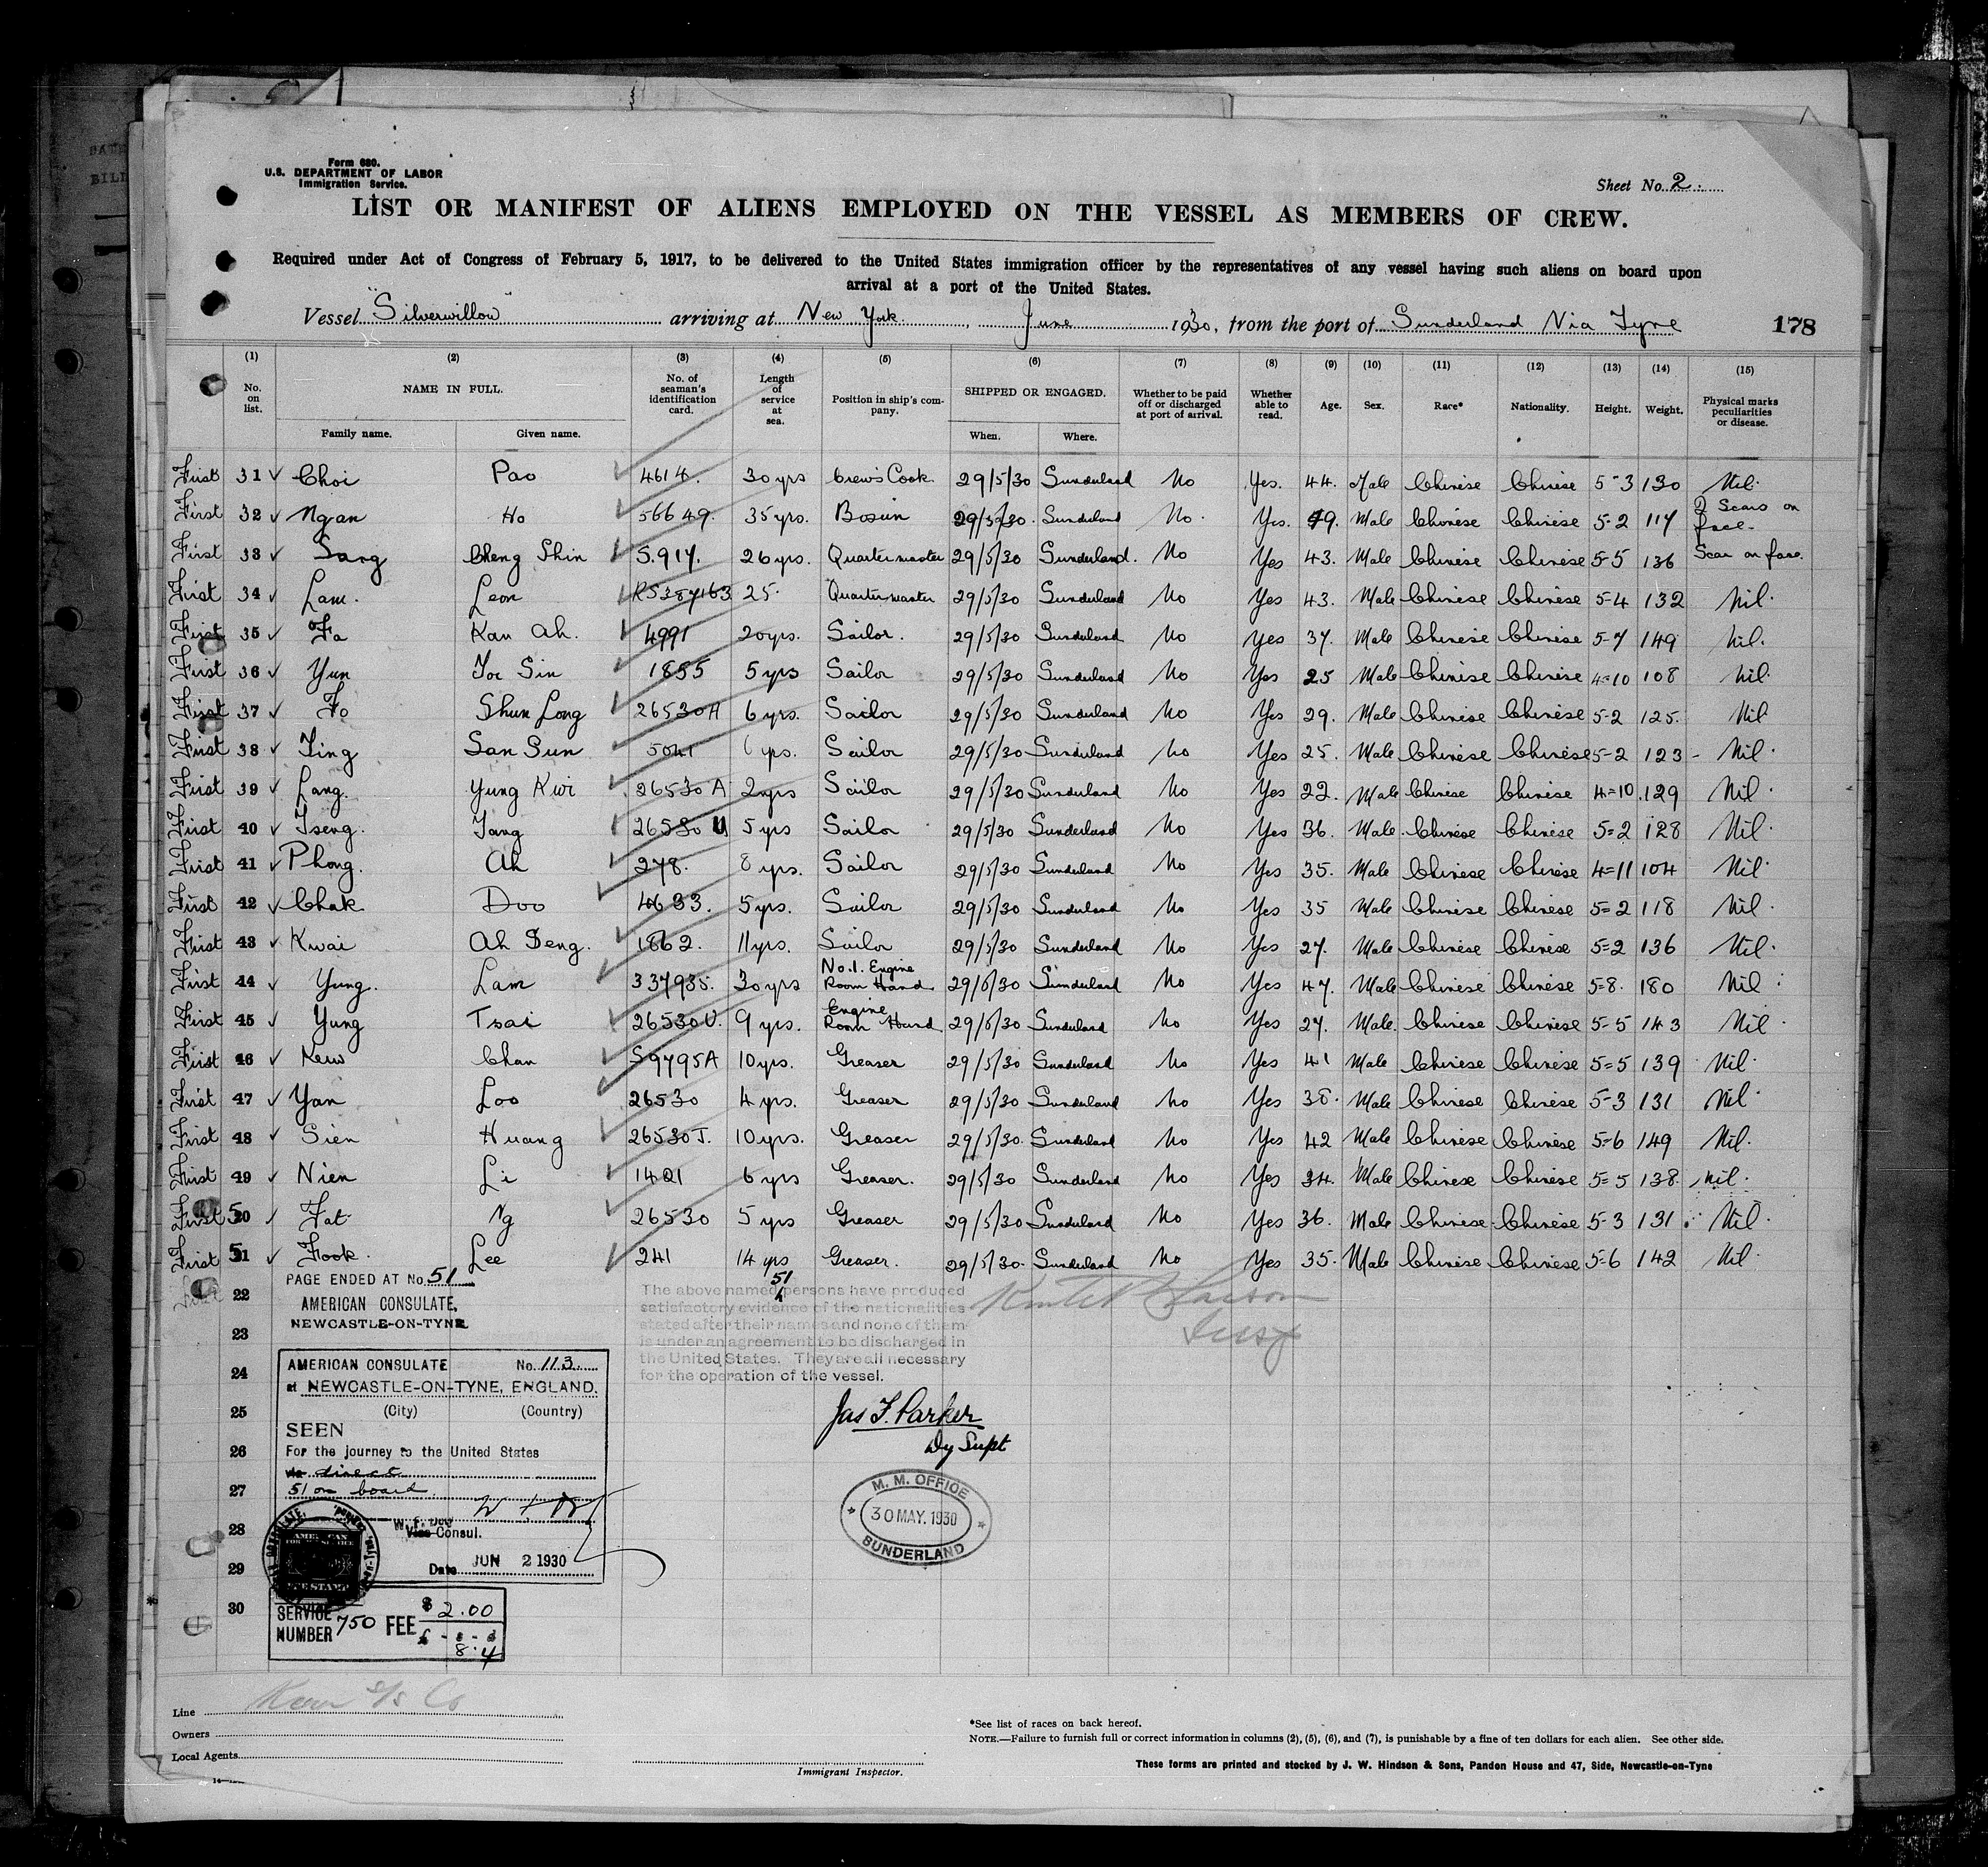 Form 680.
U.S. DEPARTMENT OF LABOR
Immigration Service.
Sheet No. 2
LIST OR MANIFEST OF ALIENS EMPLOYED ON THE VESSEL AS MEMBERS OF CREW.
Required under Act of Congress of February 5, 1917, to be delivered to the United States immigration officer by the representatives of any vessel having such aliens on board upon
arrival at a port of the United States.
Vessel "Silverwillow" arriving at New York, June 1930, from the port of Sunderland Via Tyne 178
(1) (2) (3) (4) (5) (6) (7) (8) (9) (10) (11) (12) (13) (14) (15)
No. on list. NAME IN FULL. Family name. Given name. No. of seaman's identification card. Length of service at sea. Position in ship's company. SHIPPED OR ENGAGED. When. Where. Whether to be paid off or discharged at port of arrival. Whether able to read. Age. Sex. Race* Nationality. Height. Weight. Physical marks peculiarities or disease.
First 31 ✓ Choi Pao ✓ 4614. 30 yrs Crew's Cook. 29/5/30 Sunderland No Yes. 44. Male Chinese Chinese 5-3 130 Nil.
First 32 ✓ Ngan Ho ✓ 56649. 35 yrs. Bosun 29/5/30. Sunderland No. Yes. 49. Male Chinese Chinese 5-2 117 2 Scars on face.
First 33 ✓ Sang Cheng Shin ✓ 5.917. 26 yrs. Quartermaster 29/5/30 Sunderland. No Yes 43. Male Chinese Chinese 5-5 136 Scar on face.
First 34 ✓ Lam. Leon ✓ 25. Quartermaster 29/5/30 Sunderland No Yes 43. Male Chinese Chinese 5-4 132 Nil.
First 35 ✓ Fa Kan Ah. ✓ 4991 20 yrs. Sailor. 29/5/30 Sunderland No Yes 37. Male Chinese Chinese 5-7 149 Nil.
First 36 ✓ Yun Toe Sin ✓ 1855 5 yrs Sailor 29/5/30 Sunderland No Yes 25 Male Chinese Chinese 4=10 108 Nil.
First 37 ✓ Fo Shun Long ✓ 26530A 6 yrs. Sailor 29/5/30 Sunderland No Yes 29. Male Chinese Chinese 5-2 125. Nil
First 38 ✓ Ting San Sun ✓ 5041 6 yrs. Sailor 29/5/30 Sunderland No Yes 25. Male Chinese Chinese 5-2 123 - Nil.
First 39 ✓ Lang. Yung Kwi ✓ 26530 A 2 yrs Sailor 29/5/30 Sunderland No Yes 22. Male Chinese Chinese 4=10 129 Nil.
First 40 ✓ Tseng. Tang ✓ 26530 U 5 yrs Sailor 29/5/30 Sunderland No Yes 36. Male. Chinese Chinese 5=2 128 Nil.
First 41 ✓ Phong. Ah ✓ 278. 8 yrs. Sailor 29/5/30 Sunderland No Yes 35. Male Chinese Chinese 4=11 104 Nil.
First 42 ✓ Chak Doo ✓ 4683. 5 yrs. Sailor 29/5/30 Sunderland No Yes 35 Male Chinese Chinese 5=2 118 Nil.
First 43 ✓ Kwai Ah Seng. ✓ 1862. 11 yrs. Sailor 29/5/30 Sunderland No Yes 27. Male Chinese Chinese 5=2 136 Nil.
First 44 ✓ Yung. Lam ✓ 337935. 30 yrs No.1. Engine Room Hand 29/5/30 Sunderland No Yes 47. Male Chinese Chinese 5=8. 180 Nil
First 45 ✓ Yung Tsai ✓ 26530U. 9 yrs. Engine Room Hand 29/5/30 Sunderland No Yes 27. Male. Chinese Chinese 5-5 143 Nil
First 46 ✓ Kew Chan ✓ 59795A 10 yrs. Greaser 29/5/30 Sunderland No Yes 41 Male Chinese Chinese 5=5 139 Nil.
First 47 ✓ Yan Loo ✓ 26530 4 yrs. Greaser 29/5/30 Sunderland No Yes 38. Male Chinese Chinese 5-3 131 Nil.
First 48 ✓ Sien Huang ✓ 26530J. 10 yrs. Greaser 29/5/30. Sunderland No Yes 42 Male Chinese Chinese 5=6 149 Nil.
First 49 ✓ Nien Li ✓ 1421 6 yrs Greaser. 29/5/30 Sunderland No Yes 34. Male Chinese Chinese 5=5 138. Nil.
First 50 ✓ Fat Ng ✓ 26530 5 yrs Greaser 29/5/30 Sunderland No Yes 36. Male Chinese Chinese 5-3 131. Nil.
First 51 ✓ Fook. Lee ✓ 241 14 yrs Greaser. 29/5/30. Sunderland No Yes 35. Male Chinese Chinese 5-6 142 Nil
PAGE ENDED AT No. 51
AMERICAN CONSULATE,
NEWCASTLE-ON-TYNE
22
23
24
25
26
27
28
29
30
51
The above named persons have produced
satisfactory evidence of the nationalities
stated after their names and none of them
is under an agreement to be discharged in
the United States. They are all necessary
for the operation of the vessel.
Jas F. Parker
Dy Supt
M. M. OFFICE
30 MAY. 1930
SUNDERLAND
AMERICAN CONSULATE No. 113
at NEWCASTLE-ON-TYNE, ENGLAND.
(City) (Country)
SEEN
For the journey to the United States
via direct
51 on board
W. F. Doe
Vice Consul.
Date JUN 2 1930
SERVICE NUMBER 750 FEE $ 2.00
£ - s - d
8.4
Line Kerr S/S Co
Owners
Local Agents
Immigrant Inspector.
*See list of races on back hereof.
NOTE.—Failure to furnish full or correct information in columns (2), (5), (6), and (7), is punishable by a fine of ten dollars for each alien. See other side.
These forms are printed and stocked by J. W. Hindson & Sons, Pandon House and 47, Side, Newcastle-on-Tyne